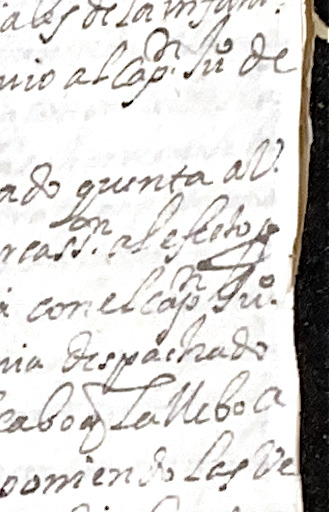 ales de la infan
nio al Capn. Juo de
ado quenta a V.
rcasson. al efecto q
a con el capn Juo.
nia despachado
cabo q la llebo a
poniendo las Ve